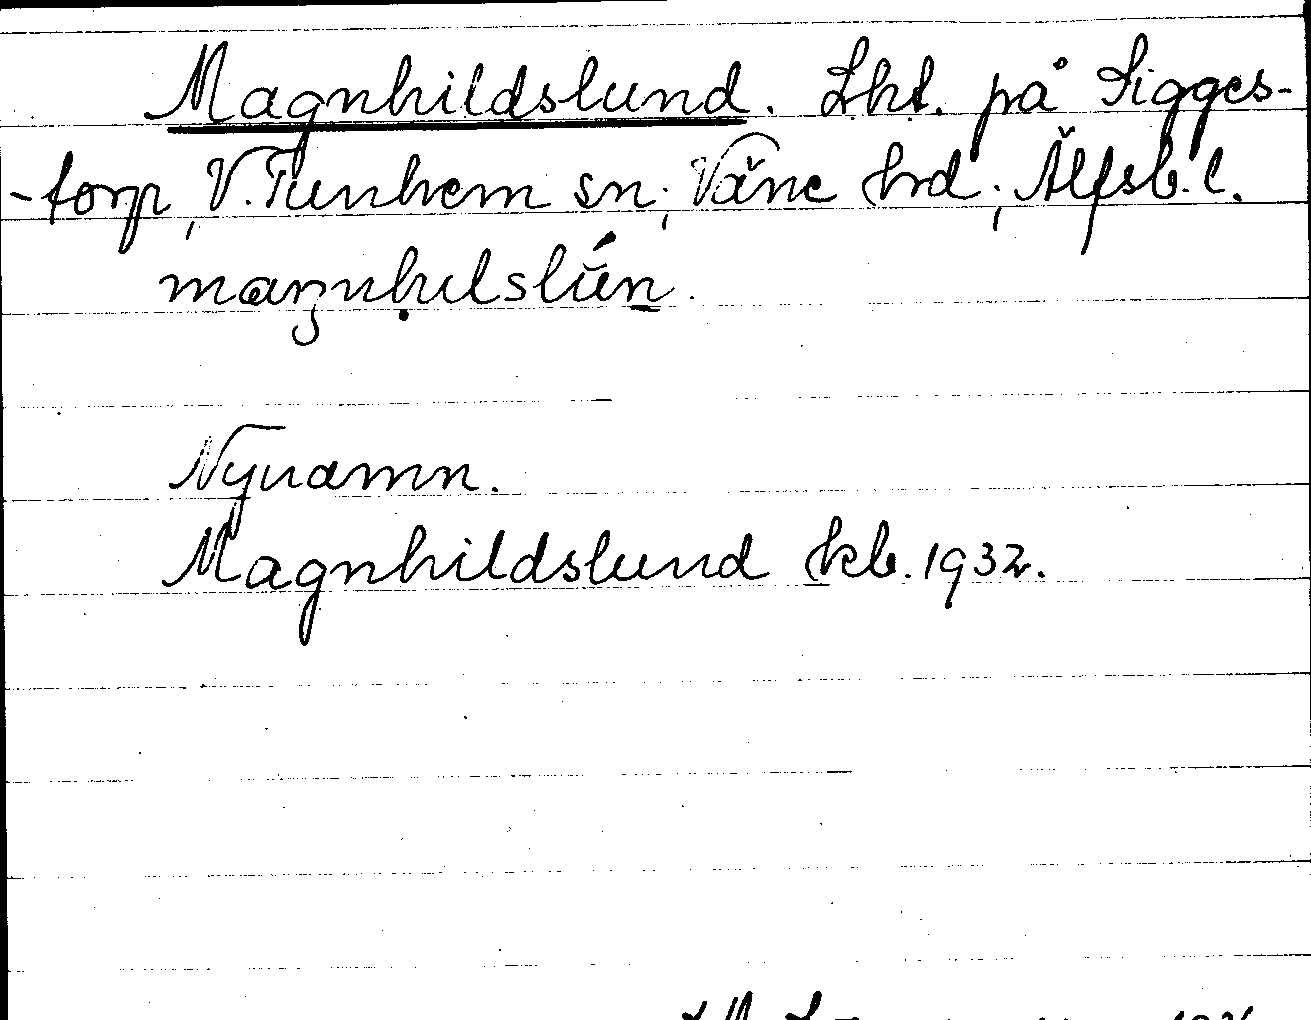 Magnhildslund. Lht. på Sigges-
-torp, V. Tunhem sn; Väne hrd; Älfsb. l.
Nynamn.
Magnhildslund kb. 1932.